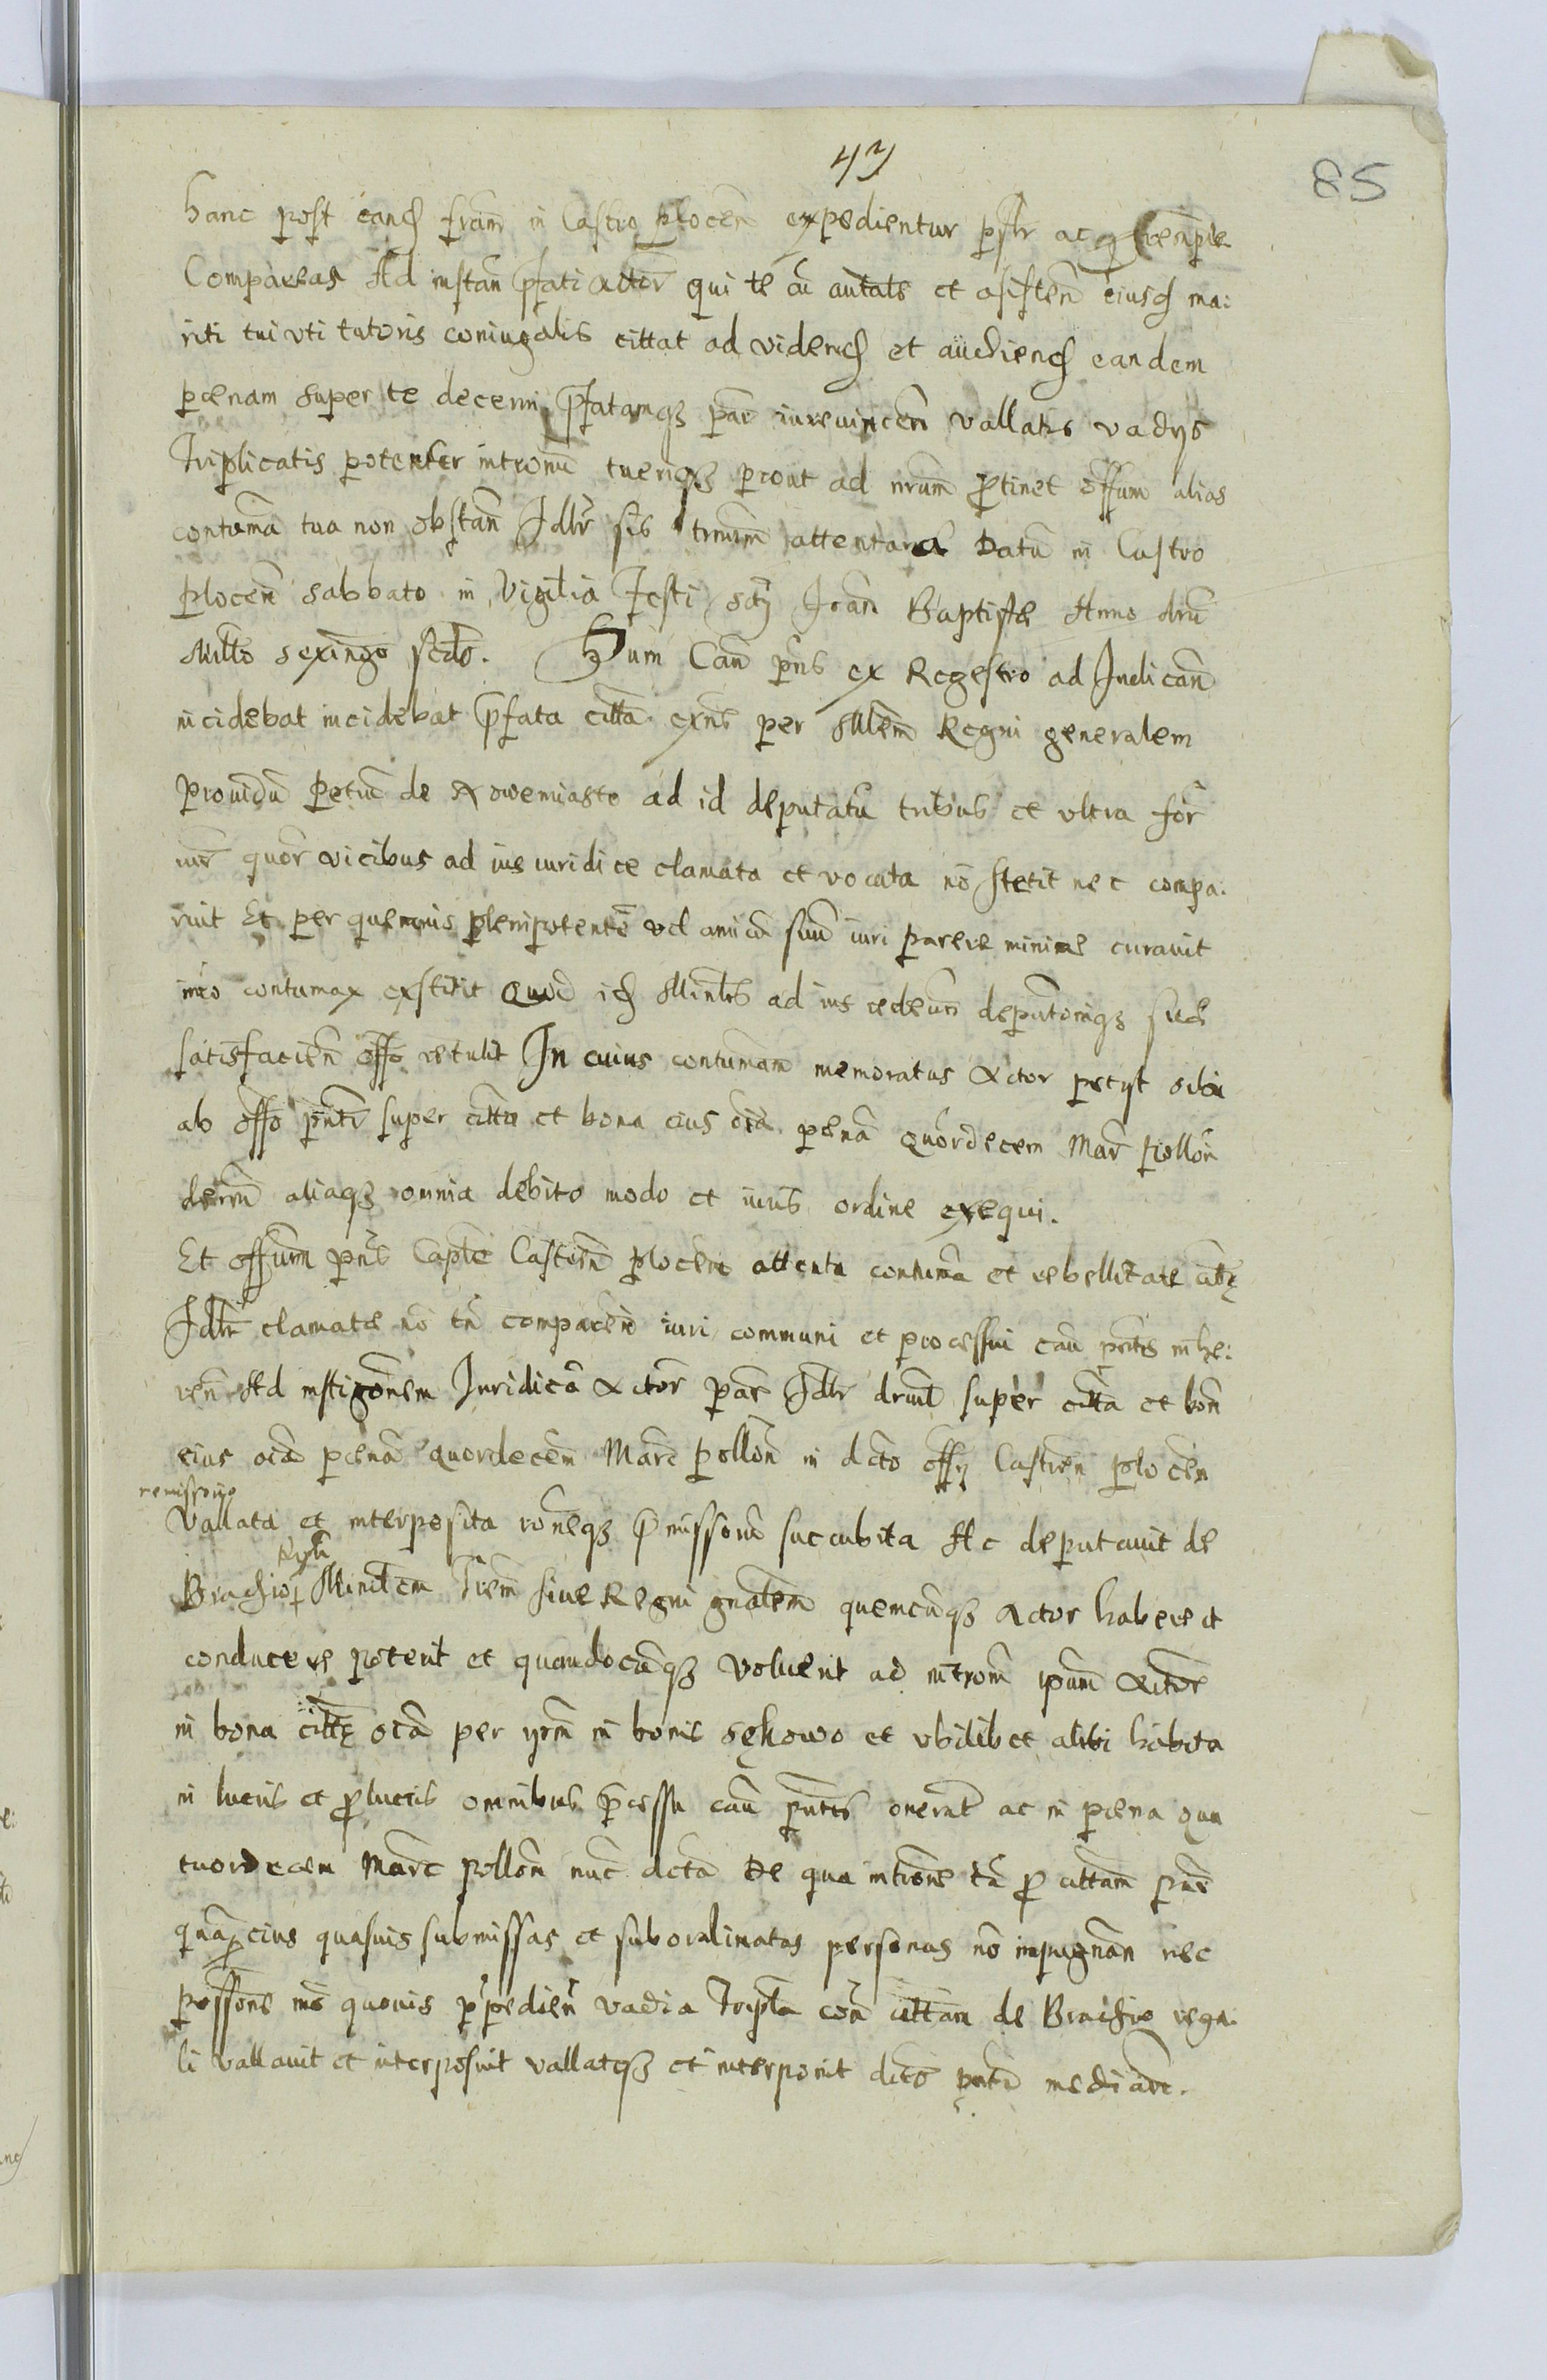 43
85
hanc post eand fram in Castro plocen expedientur pstr ac
Compareas Ad instan pfati actor qui te cū autate et asisten eiusd ma:
riti tui vti tutoris coniugalis cittat ad videnq et audienq eandem
pænam super te decerni pfatamqz par iurevincen vallatis vadys
Triplicatis potenter intromi tueriqz prout ad nrum ptinet offum alias
contuma tua non obstan Idlr sib attentan Datū in Castro
plocen sabbato in Vigilia Festi scti Joan Baptistæ Anno dni
Millo sexingo scdo. Dum Cau pns ex Regestro ad Iudican
incidebat incidebat pfata citta exns per Mlem Regni generalem
providū Petrū de Nowemiasto ad id deputatū tribus et vltra for
iur quor vicibus ad ius iuridice clamata et vocata nō stetit nec compa:
ruit Et per quemvis plenipotentē vel amicū suū iuri parere minime curavit
imo contumax exstitit quod id Minlis ad ius redeun deputoniqz suæ
satisfacien offo retulit In cuius contumam memoratus Actor petyt sibi
ab offo pnti super citta et bona eius oia pænā quordecem Mar pollon
decerni aliaqz omnia debito modo et iuris ordine exequi.
Et offium pns Caple Castren plocen attenta contuma et rebellitate citte
Idlr clamatæ nō tn comparen iuri communi et processui cau pntis inhe:
ren Ad instigonem Iuridicā Actor par Idlr druit super citta et bon
eius oia pænā quordecem Marc pollon in dcto offy Castren plocen
remissorio
Vallata et interposita roneqz pmissorū succubita Ac deputavit de
Brachio Minlem Trem sive Regni gnalem quemcūqz Actor habere et
conducere poterit et quandocūqz voluerit ad introm ipsum Actore
in bona citte oia per ipsm in bonis sękowo et vbilibet alibi habita
in lucris et plucris omnibus pcessu cau pntis onerat ac in pæna qua
tuordecem Marc pollon nuc dcta De qua introne tn p cittam pnr
quam eius quasvis submissas et subordinatas personas nō impugnan nec
possone mō quovis ppedien vadia Tripla con cittam de Brachio rega
li vallavit et interposuit vallatqz et interponit dcto pnti median.